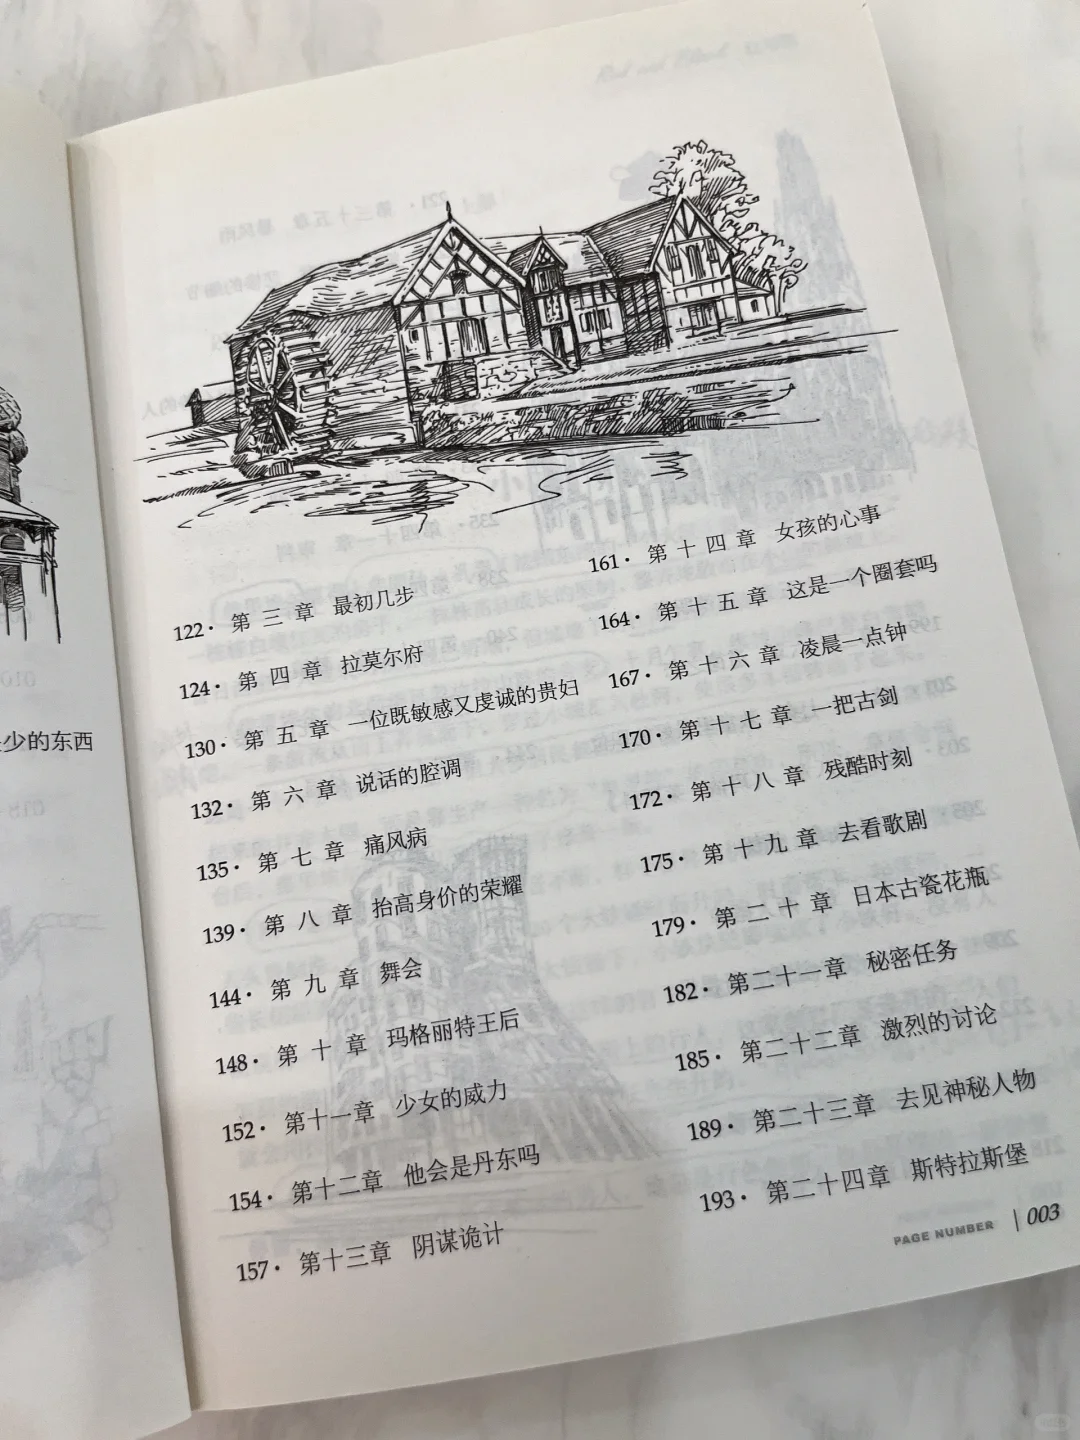 少的东西
122· 第三章 最初几步
124· 第四章 拉莫尔府
130· 第五章 一位既敏感又虔诚的贵妇
132· 第六章 说话的腔调
135· 第七章 痛风病
139· 第八章 抬高身价的荣耀
144· 第九章 舞会
148· 第十章 玛格丽特王后
152· 第十一章 少女的威力
154· 第十二章 他会是丹东吗
157· 第十三章 阴谋诡计
161· 第十四章 女孩的心事
164· 第十五章 这是一个圈套吗
167· 第十六章 凌晨一点钟
170· 第十七章 一把古剑
172· 第十八章 残酷时刻
175· 第十九章 去看歌剧
179· 第二十章 日本古瓷花瓶
182· 第二十一章 秘密任务
185· 第二十二章 激烈的讨论
189· 第二十三章 去见神秘人物
193· 第二十四章 斯特拉斯堡
PAGE NUMBER | 003